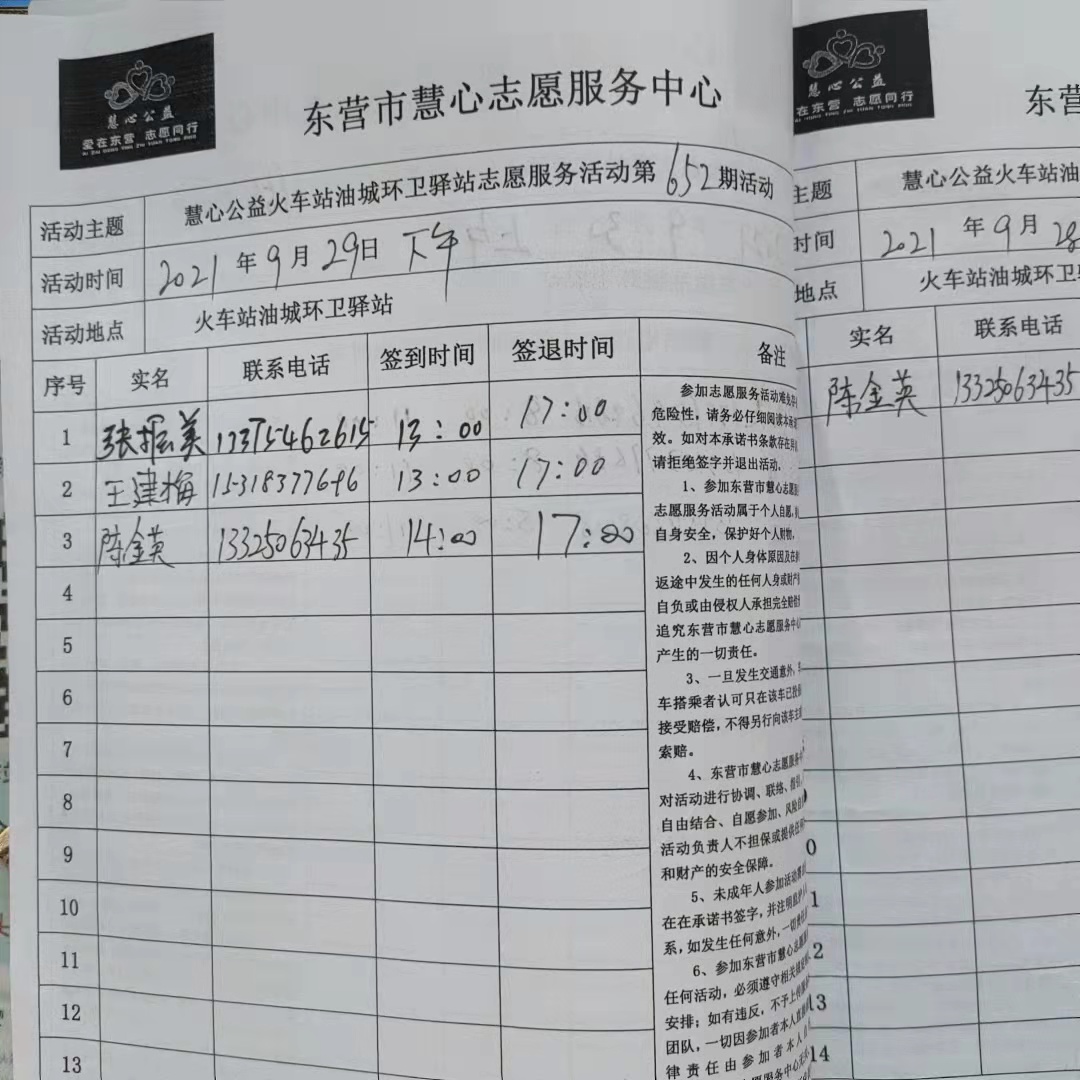 慧心公益
爱在东营 志愿同行
东营市慧心志愿服务中心
活动主题 慧心公益火车站油城环卫驿站志愿服务活动第652期活动
活动时间 2021年9月29日 下午
活动地点 火车站油城环卫驿站
序号 实名 联系电话 签到时间 签退时间 备注
1 张振美 13375462615 13:00 17:00
2 王建梅 15318377696 13:00 17:00
3 陈金英 13325063435 14:00 17:00
4
5
6
7
8
9
10
11
12
13
参加志愿服务活动难免存
危险性,请务必仔细阅读本承
效。如对本承诺书条款存在异
请拒绝签字并退出活动。
1、参加东营市慧心志愿
志愿服务活动属于个人自愿,
自身安全,保护好个人财物,
2、因个人身体原因及在
返途中发生的任何人身或财产
自负或由侵权人承担完全赔偿
追究东营市慧心志愿服务中心
产生的一切责任。
3、一旦发生交通意外,
车搭乘者认可只在该车已投
接受赔偿,不得另行向该车主
索赔。
4、东营市慧心志愿服务
对活动进行协调、联络、指引,
自由结合、自愿参加、风险自
活动负责人不担保或提供任何
和财产的安全保障。
5、未成年人参加活动需
在在承诺书签字,并注明监护
系,如发生任何意外,一切责
6、参加东营市慧心志愿
任何活动,必须遵守相关规定
安排;如有违反,不予上
团队,一切因参加者本人
律责任由参加者本人
志愿服务中心
慧心公益
在东营 志愿同行
东营
主题 慧心公益火车站油
时间 2021年9月28
地点 火车站油城环卫
实名 联系电话
陈金英 13325063435
0
1
2
13
14